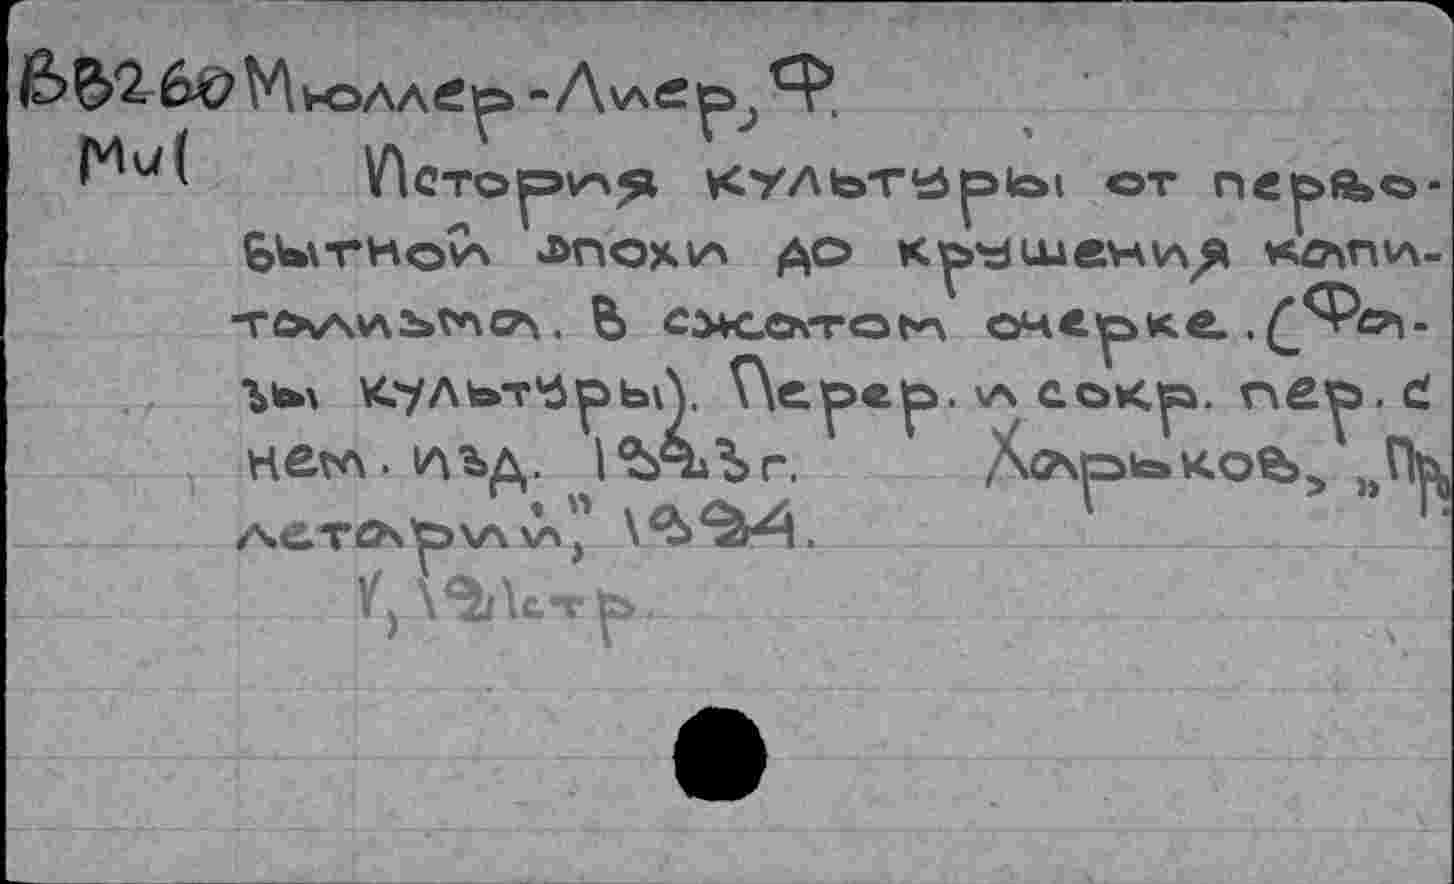 Мюллер-Лиер, Ф.
История культуры от перво-
бытной эпохи до крушения капи-
тализма. В сжатом очерке. (Фа-
зы культуры). Перер. и сокр. пер. с
нем. изд. г. Харьков, „Пр
летарий",
V, стр.